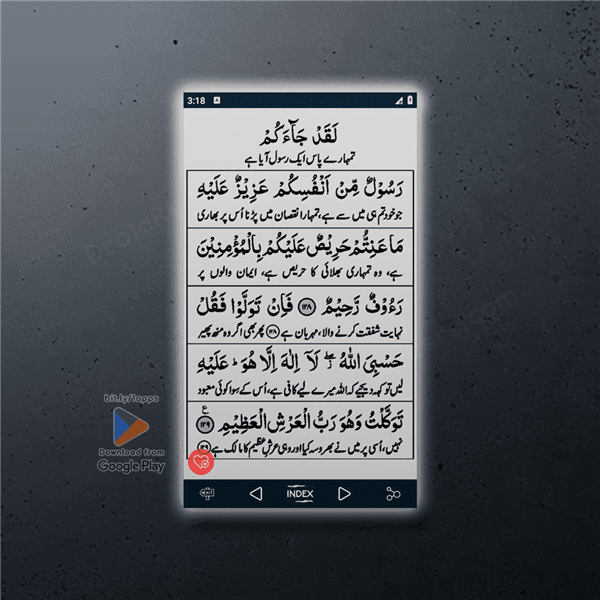 3:18
لَقَدْ جَآءَكُمْ
تمہارے پاس ایک رسول آیا ہے
رَسُوْلٌ مِّنْ اَنْفُسِكُمْ عَزِيْزٌ عَلَيْهِ
جو خود تم ہی میں سے ہے، تمہارا نقصان میں پڑنا اُس پر بھاری
مَا عَنِتُّمْ حَرِيْصٌ عَلَيْكُمْ بِالْمُؤْمِنِيْنَ
ہے، وہ تمہاری بھلائی کا حریص ہے، ایمان والوں پر
رَءُوْفٌ رَّحِيْمٌ ۝۱۲۸ فَاِنْ تَوَلَّوْا فَقُلْ
نہایت شفقت کرنے والا، مہربان ہے ۝۱۲۸ پھر بھی اگر وہ منھ پھیر
حَسْبِىَ اللّٰهُ ۖ ز لَآ اِلٰهَ اِلَّا هُوَ ؕ عَلَيْهِ
لیں تو کہہ دیجیے کہ اللہ میرے لیے کافی ہے، اُس کے سِوا کوئی معبود
تَوَكَّلْتُ وَهُوَ رَبُّ الْعَرْشِ الْعَظِيْمِ ۝۱۲۹ ع
نہیں، اُسی پر میں نے بھروسہ کیا اور وہی عرشِ عظیم کا مالک ہے ۝۱۲۹
bit.ly/1apps
Download from
Google Play
EXIT
INDEX